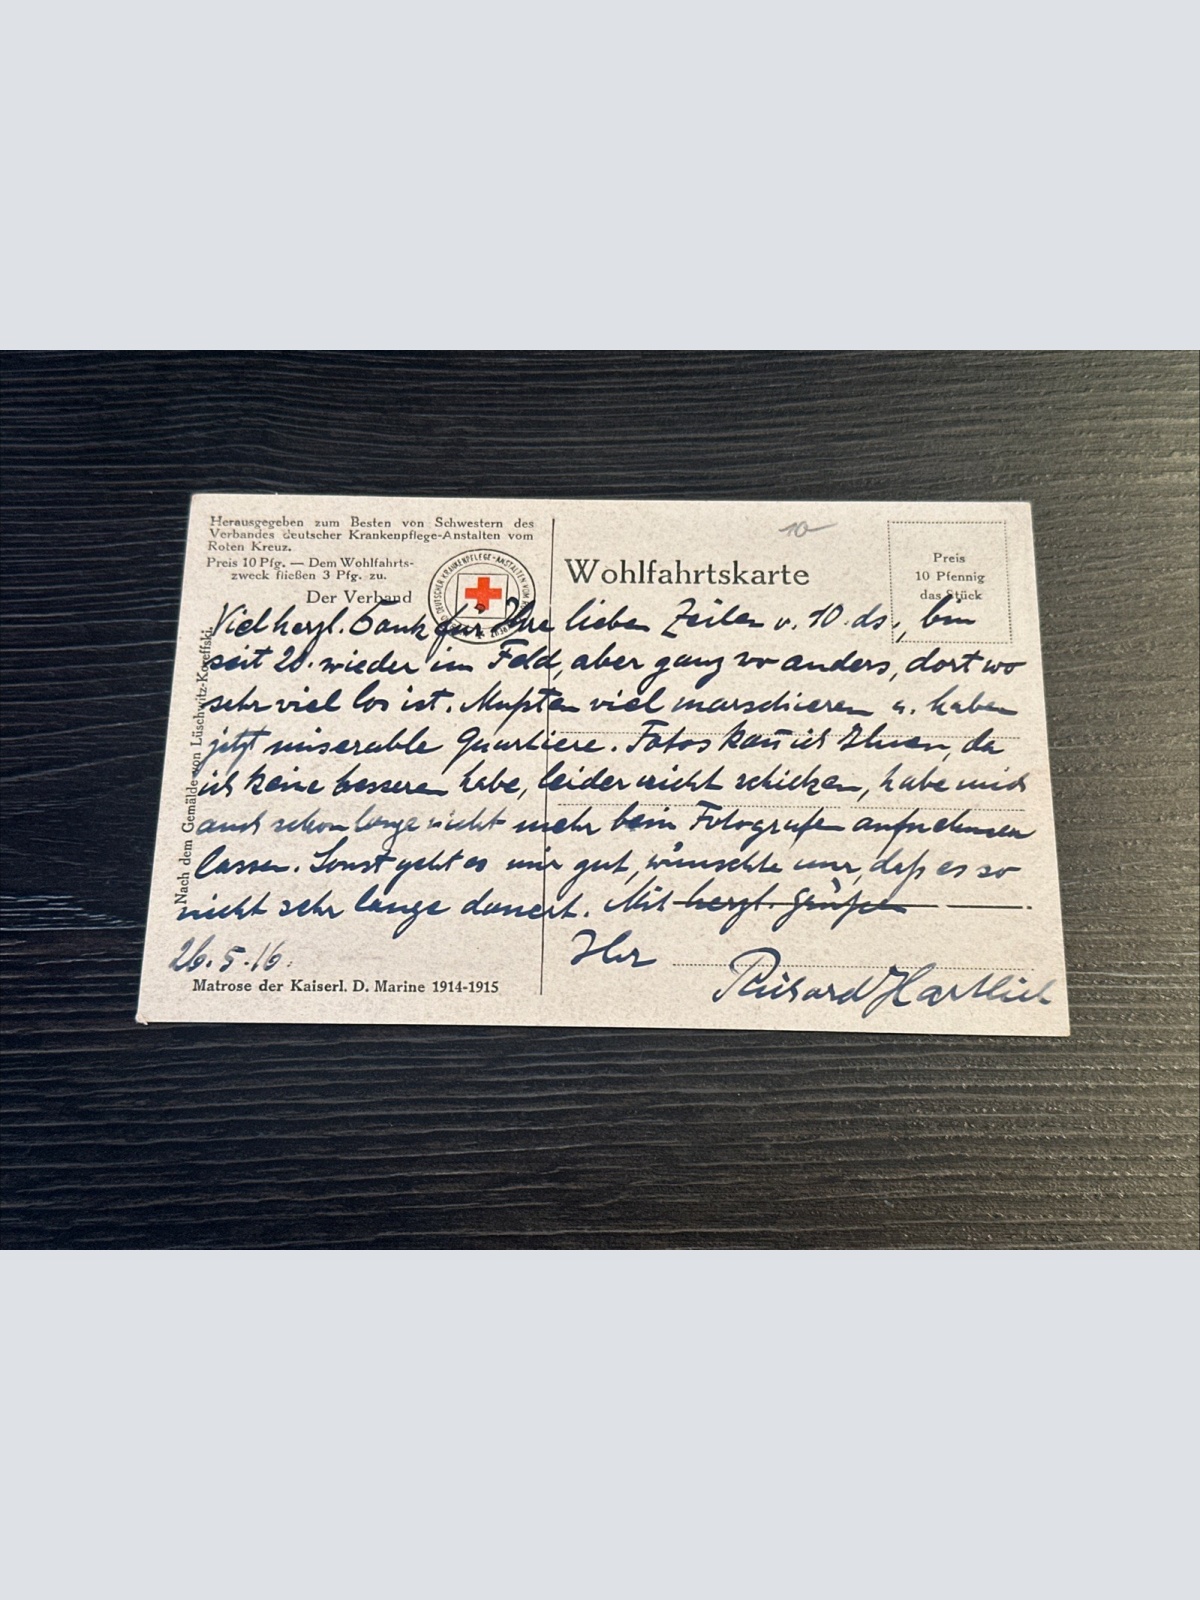 Herausgegeben zum Besten von Schwestern des
Verbandes deutscher Krankenpflege-Anstalten vom
Roten Kreuz.
Preis 10 Pfg. — Dem Wohlfahrts-
zweck fließen 3 Pfg. zu.
Der Verband
DEUTSCHER KRANKENPFLEGE-ANSTALTEN VOM
10
Wohlfahrtskarte
Preis
10 Pfennig
das Stück
Nach dem Gemälde von Lüschwitz-Koreffski.
Viel herzl. Dank für Ihre lieben Zeilen v. 10. ds., bin
seit 20. wieder im Feld, aber ganz wo anders, dort wo
sehr viel los ist. Mußten viel marschieren u. haben
jetzt miserable Quartiere. Fotos kañ ich Ihnen, da
ich keine besseren habe, leider nicht schicken, habe mich
auch schon lange nicht mehr beim Fotografen aufnehmen
lassen. Sonst geht es mir gut, wünschte nur, daß es so
nicht sehr lange dauert. Mit herzl. Grüßen
Ihr
26.5.16.
Richard Hartlich
Matrose der Kaiserl. D. Marine 1914-1915